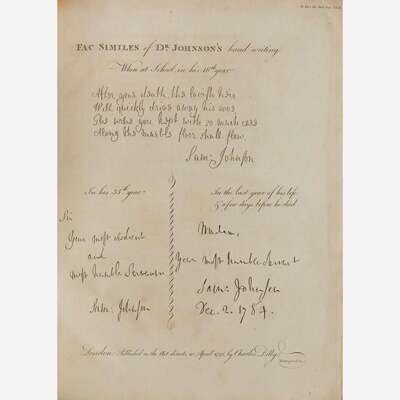 FAC SIMILES of Dr. JOHNSON'S hand writing.
When at School in his 16th year
After your death, the lavish heir
Will quickly drive away his woe
The wine you kept with so much care
Along the marble floor shall flow.
Sam: Johnson
In his 35th year
Sir
Your most obedient
and
most humble Servant
Sam: Johnson
In the last year of his life,
& a few days before he died
Madam,
Your most humble Servant
Sam: Johnson
Dec. 2. 1784.
London, Published as the Act directs, April 1791, by Charles Dilly.